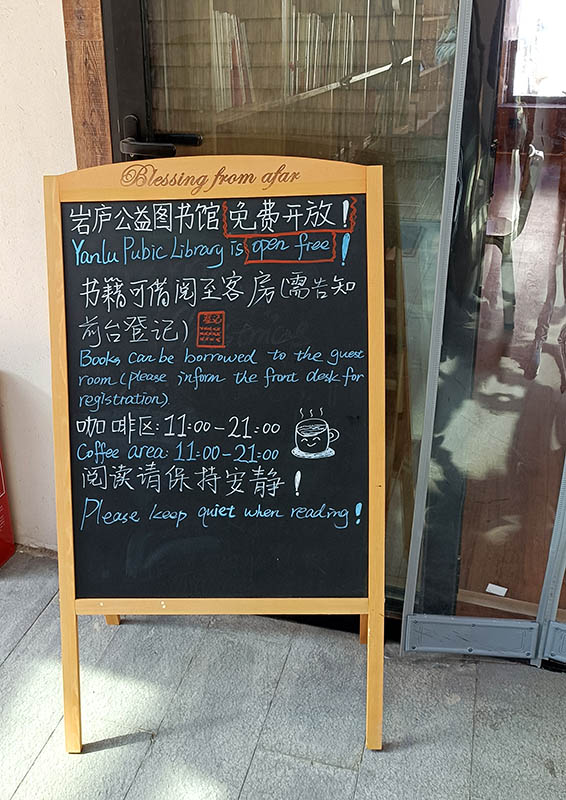 Blessing from afar
岩庐公益图书馆 免费开放！
Yanlu Pubic Library is open free !
书籍可借阅至客房(需告知
前台登记)
Books can be borrowed to the guest
room (please inform the front desk for
registration).
咖啡区: 11:00-21:00
Coffee area: 11:00-21:00
阅读请保持安静！
Please keep quiet when reading!